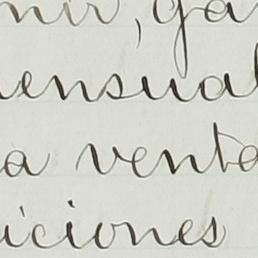 mir, ga
ensual
a venta
iciones